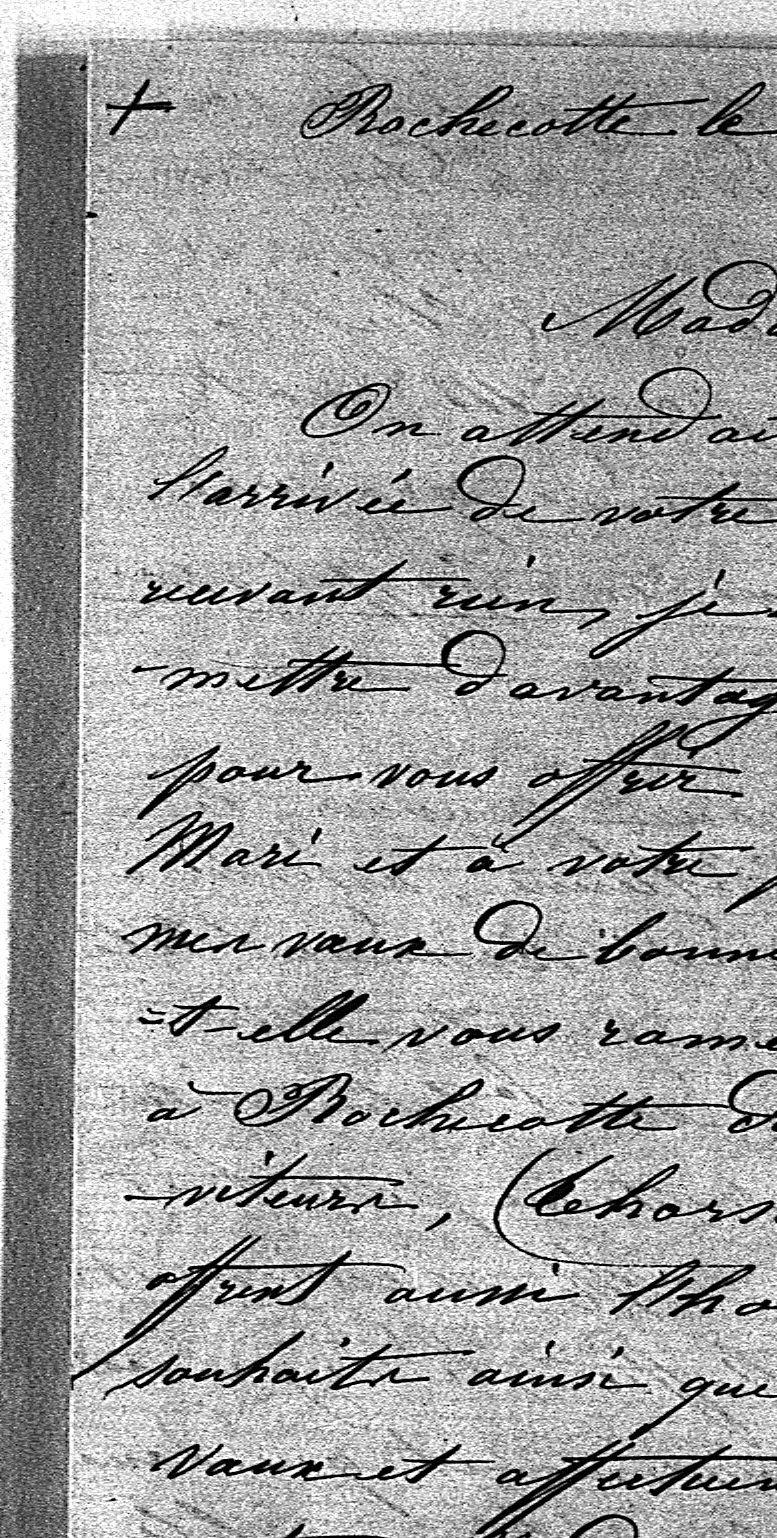 + Rochecotte le
Mad
On attendai
l'arrivée de votre
recevant rien, je
-mettre davantag
pour vous offrir
Mari et à votre
mes vœux de bonne
=t-elle vous rame
à Rochecotte d
-viteurs, (
offrent aussi l'ho
souhaits ainsi que
vœux et affectueu